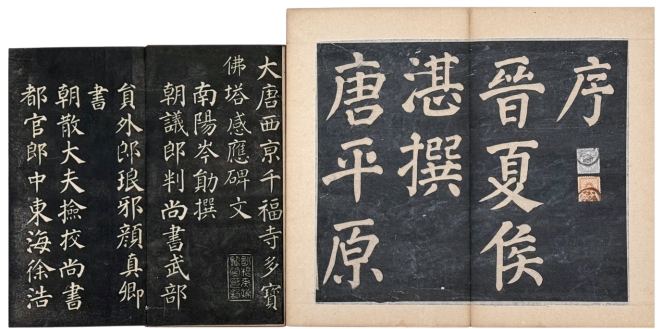 序
晉夏侯
湛撰
唐平原
大唐西京千福寺多寶
佛塔感應碑文
南陽岑勛撰
朝議郎判尚書武部
員外郎琅邪顏真卿
書
朝散大夫撿挍尚書
都官郎中東海徐浩